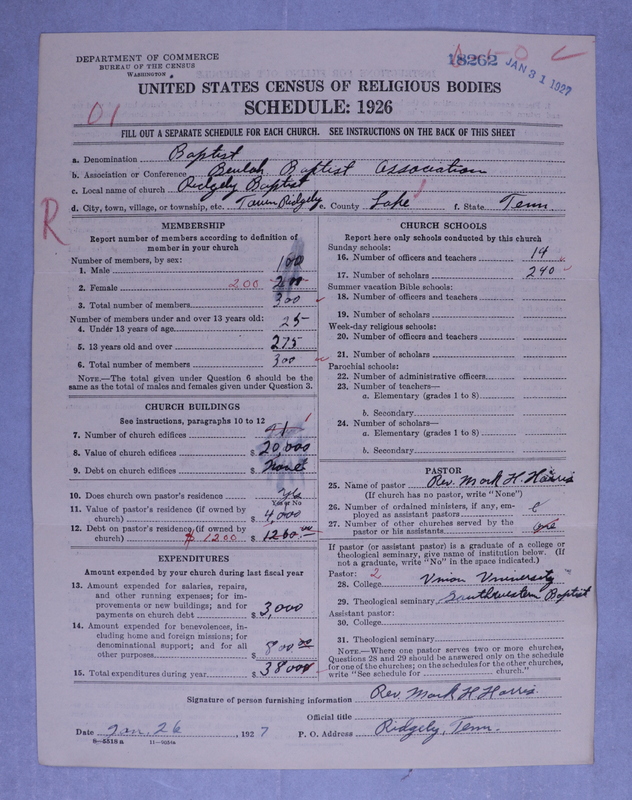 DEPARTMENT OF COMMERCE
BUREAU OF THE CENSUS
WASHINGTON
18262
JAN 31 1927
UNITED STATES CENSUS OF RELIGIOUS BODIES
SCHEDULE: 1926
01
FILL OUT A SEPARATE SCHEDULE FOR EACH CHURCH. SEE INSTRUCTIONS ON THE BACK OF THIS SHEET
a. Denomination Baptist
b. Association or Conference Beulah Baptist Association
c. Local name of church Ridgely Baptist
d. City, town, village, or township, etc. Town Ridgely e. County Lake f. State Tenn.
R
MEMBERSHIP
Report number of members according to definition of member in your church
Number of members, by sex:
1. Male 100
2. Female 200 200
3. Total number of members 300
Number of members under and over 13 years old:
4. Under 13 years of age 25
5. 13 years old and over 275
6. Total number of members 300
NOTE.—The total given under Question 6 should be the same as the total of males and females given under Question 3.
CHURCH BUILDINGS
See instructions, paragraphs 10 to 12
7. Number of church edifices 1
8. Value of church edifices $ 20,000
9. Debt on church edifices $ None
10. Does church own pastor's residence Yes
Yes or No
11. Value of pastor's residence (if owned by church) $ 4,000
12. Debt on pastor's residence (if owned by church) $1200 $ 1200.00
EXPENDITURES
Amount expended by your church during last fiscal year
13. Amount expended for salaries, repairs, and other running expenses; for improvements or new buildings; and for payments on church debt $ 3,000
14. Amount expended for benevolences, including home and foreign missions; for denominational support; and for all other purposes $ 800.00
15. Total expenditures during year $ 3800
CHURCH SCHOOLS
Report here only schools conducted by this church
Sunday schools:
16. Number of officers and teachers 14
17. Number of scholars 240
Summer vacation Bible schools:
18. Number of officers and teachers
19. Number of scholars
Week-day religious schools:
20. Number of officers and teachers
21. Number of scholars
Parochial schools:
22. Number of administrative officers
23. Number of teachers—
a. Elementary (grades 1 to 8)
b. Secondary
24. Number of scholars—
a. Elementary (grades 1 to 8)
b. Secondary
PASTOR
25. Name of pastor Rev. Mark H. Harris
(If church has no pastor, write "None")
26. Number of ordained ministers, if any, employed as assistant pastors
27. Number of other churches served by the pastor or his assistants one
If pastor (or assistant pastor) is a graduate of a college or theological seminary, give name of institution below. (If not a graduate, write "No" in the space indicated.)
Pastor: 2
28. College Union University
29. Theological seminary Southwestern Baptist
Assistant pastor:
30. College
31. Theological seminary
NOTE.—Where one pastor serves two or more churches, Questions 28 and 29 should be answered only on the schedule for one of the churches; on the schedules for the other churches, write "See schedule for church."
Signature of person furnishing information Rev. Mark H Harris
Official title
Date Jan. 26, 1927 P. O. Address Ridgely, Tenn.
8—5518 a 11—9654a